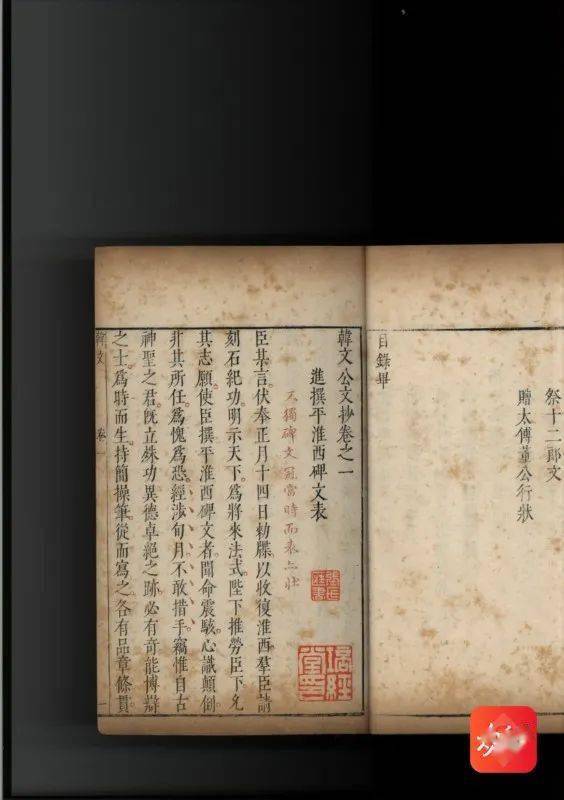 祭十二郎文
贈太傅董公行狀
目錄畢
韓文公文抄卷之一
進撰平淮西碑文表
不獨碑文冠當時而表亦壯
臣某言伏奉正月十四日勅牒以收復淮西羣臣請
刻石紀功明示天下爲將來法式陛下推勞臣下允
其志願使臣撰平淮西碑文者聞命震駭心識顛倒
非其所任爲愧爲恐經涉旬月不敢措手竊惟自古
神聖之君既立殊功異德卓絕之跡必有奇能博辯
之士爲時而生持簡操筆從而寫之各有品章條貫
韓文
卷一
一